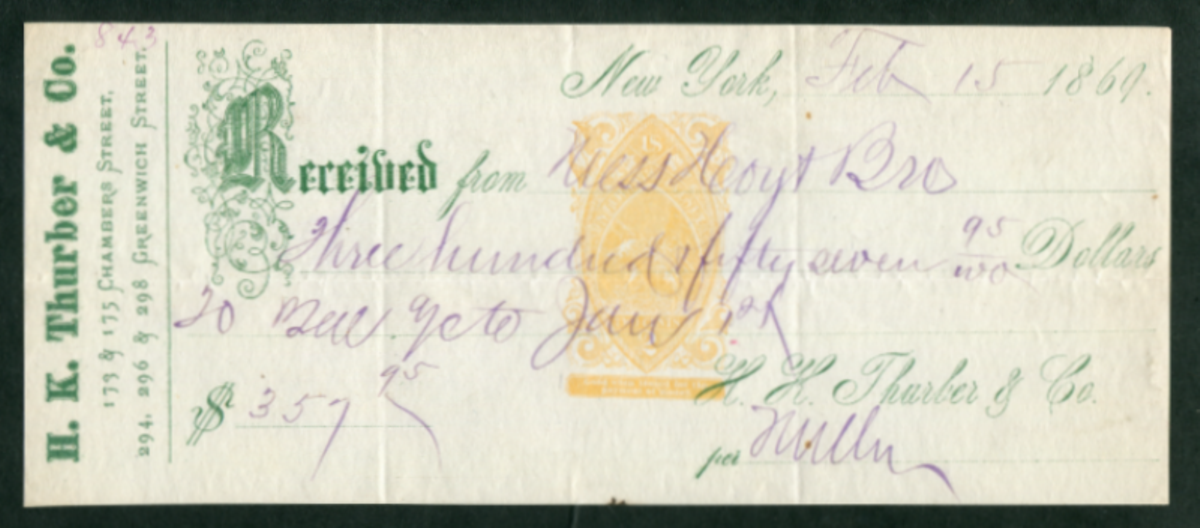 843
H. K. Thurber & Co.
173 & 175 Chambers Street,
294, 296 & 298 Greenwich Street.
New York, Feb 15 1869.
Received from Mess Hoyt Bro
Three hundred & fifty seven 95/100 Dollars
to Jan 1st
$ 357 95
H. K. Thurber & Co.
per